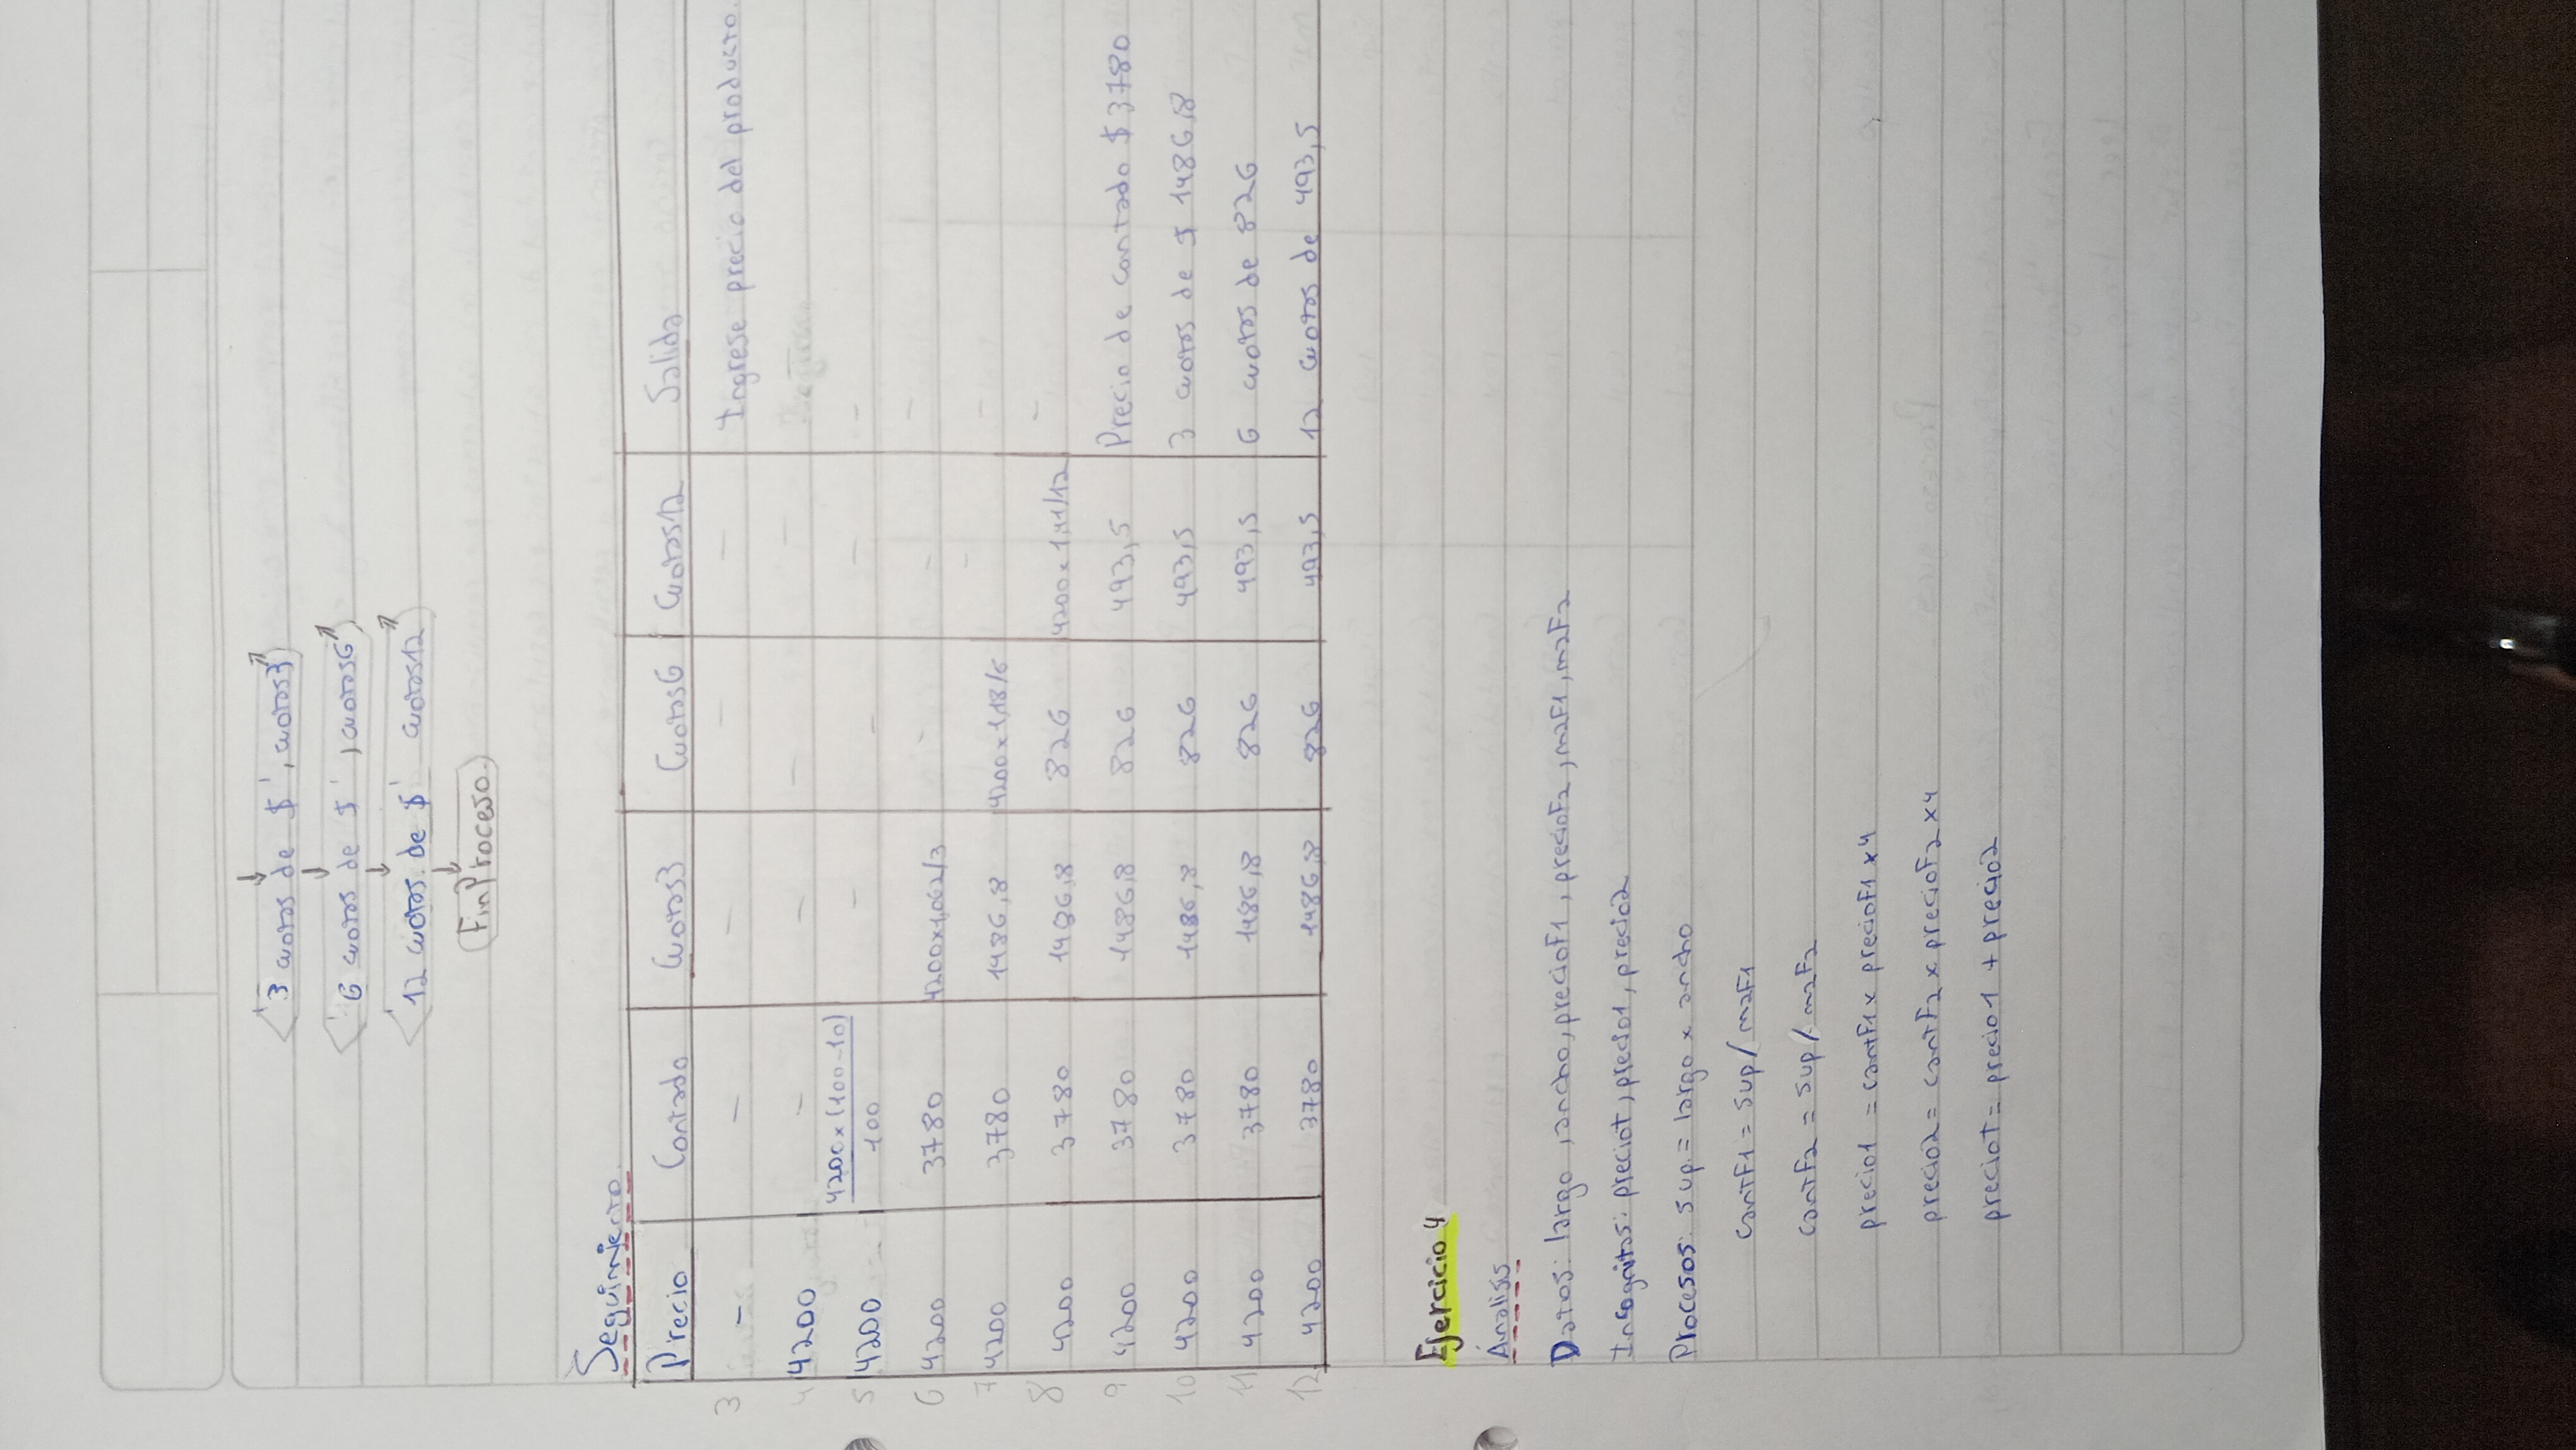 '3 cuotas de $', cuotas3
'6 cuotas de $', cuotas6
'12 cuotas de $' cuotas12
FinProceso.
Seguimiento.
Precio Contado Cuotas3 Cuotas6 Cuotas12 Salida
3 - - - - - Ingrese precio del producto.
4 4200 - - - -
5 4200 4200x(100-10)/100 - - - -
6 4200 3780 4200x1,062/3 - - -
7 4200 3780 1486,8 4200x1,18/6 - -
8 4200 3780 1486,8 826 4200x1,41/12 -
9 4200 3780 1486,8 826 493,5 Precio de contado $3780
10 4200 3780 1486,8 826 493,5 3 cuotas de $ 1486,8
11 4200 3780 1486,8 826 493,5 6 cuotas de 826
12 4200 3780 1486,8 826 493,5 12 cuotas de 493,5
Ejercicio 4
Ánalisis
Datos: largo, ancho, precioF1, precioF2, m2F1, m2F2
Incognitas: preciot, precio1, precio2
Procesos: sup. = largo x ancho
cantF1 = sup/m2F1
cantF2 = sup/m2F2
precio1 = cantF1 x precioF1 x4
precio2 = cantF2 x precioF2 x4
preciot = precio1 + precio2